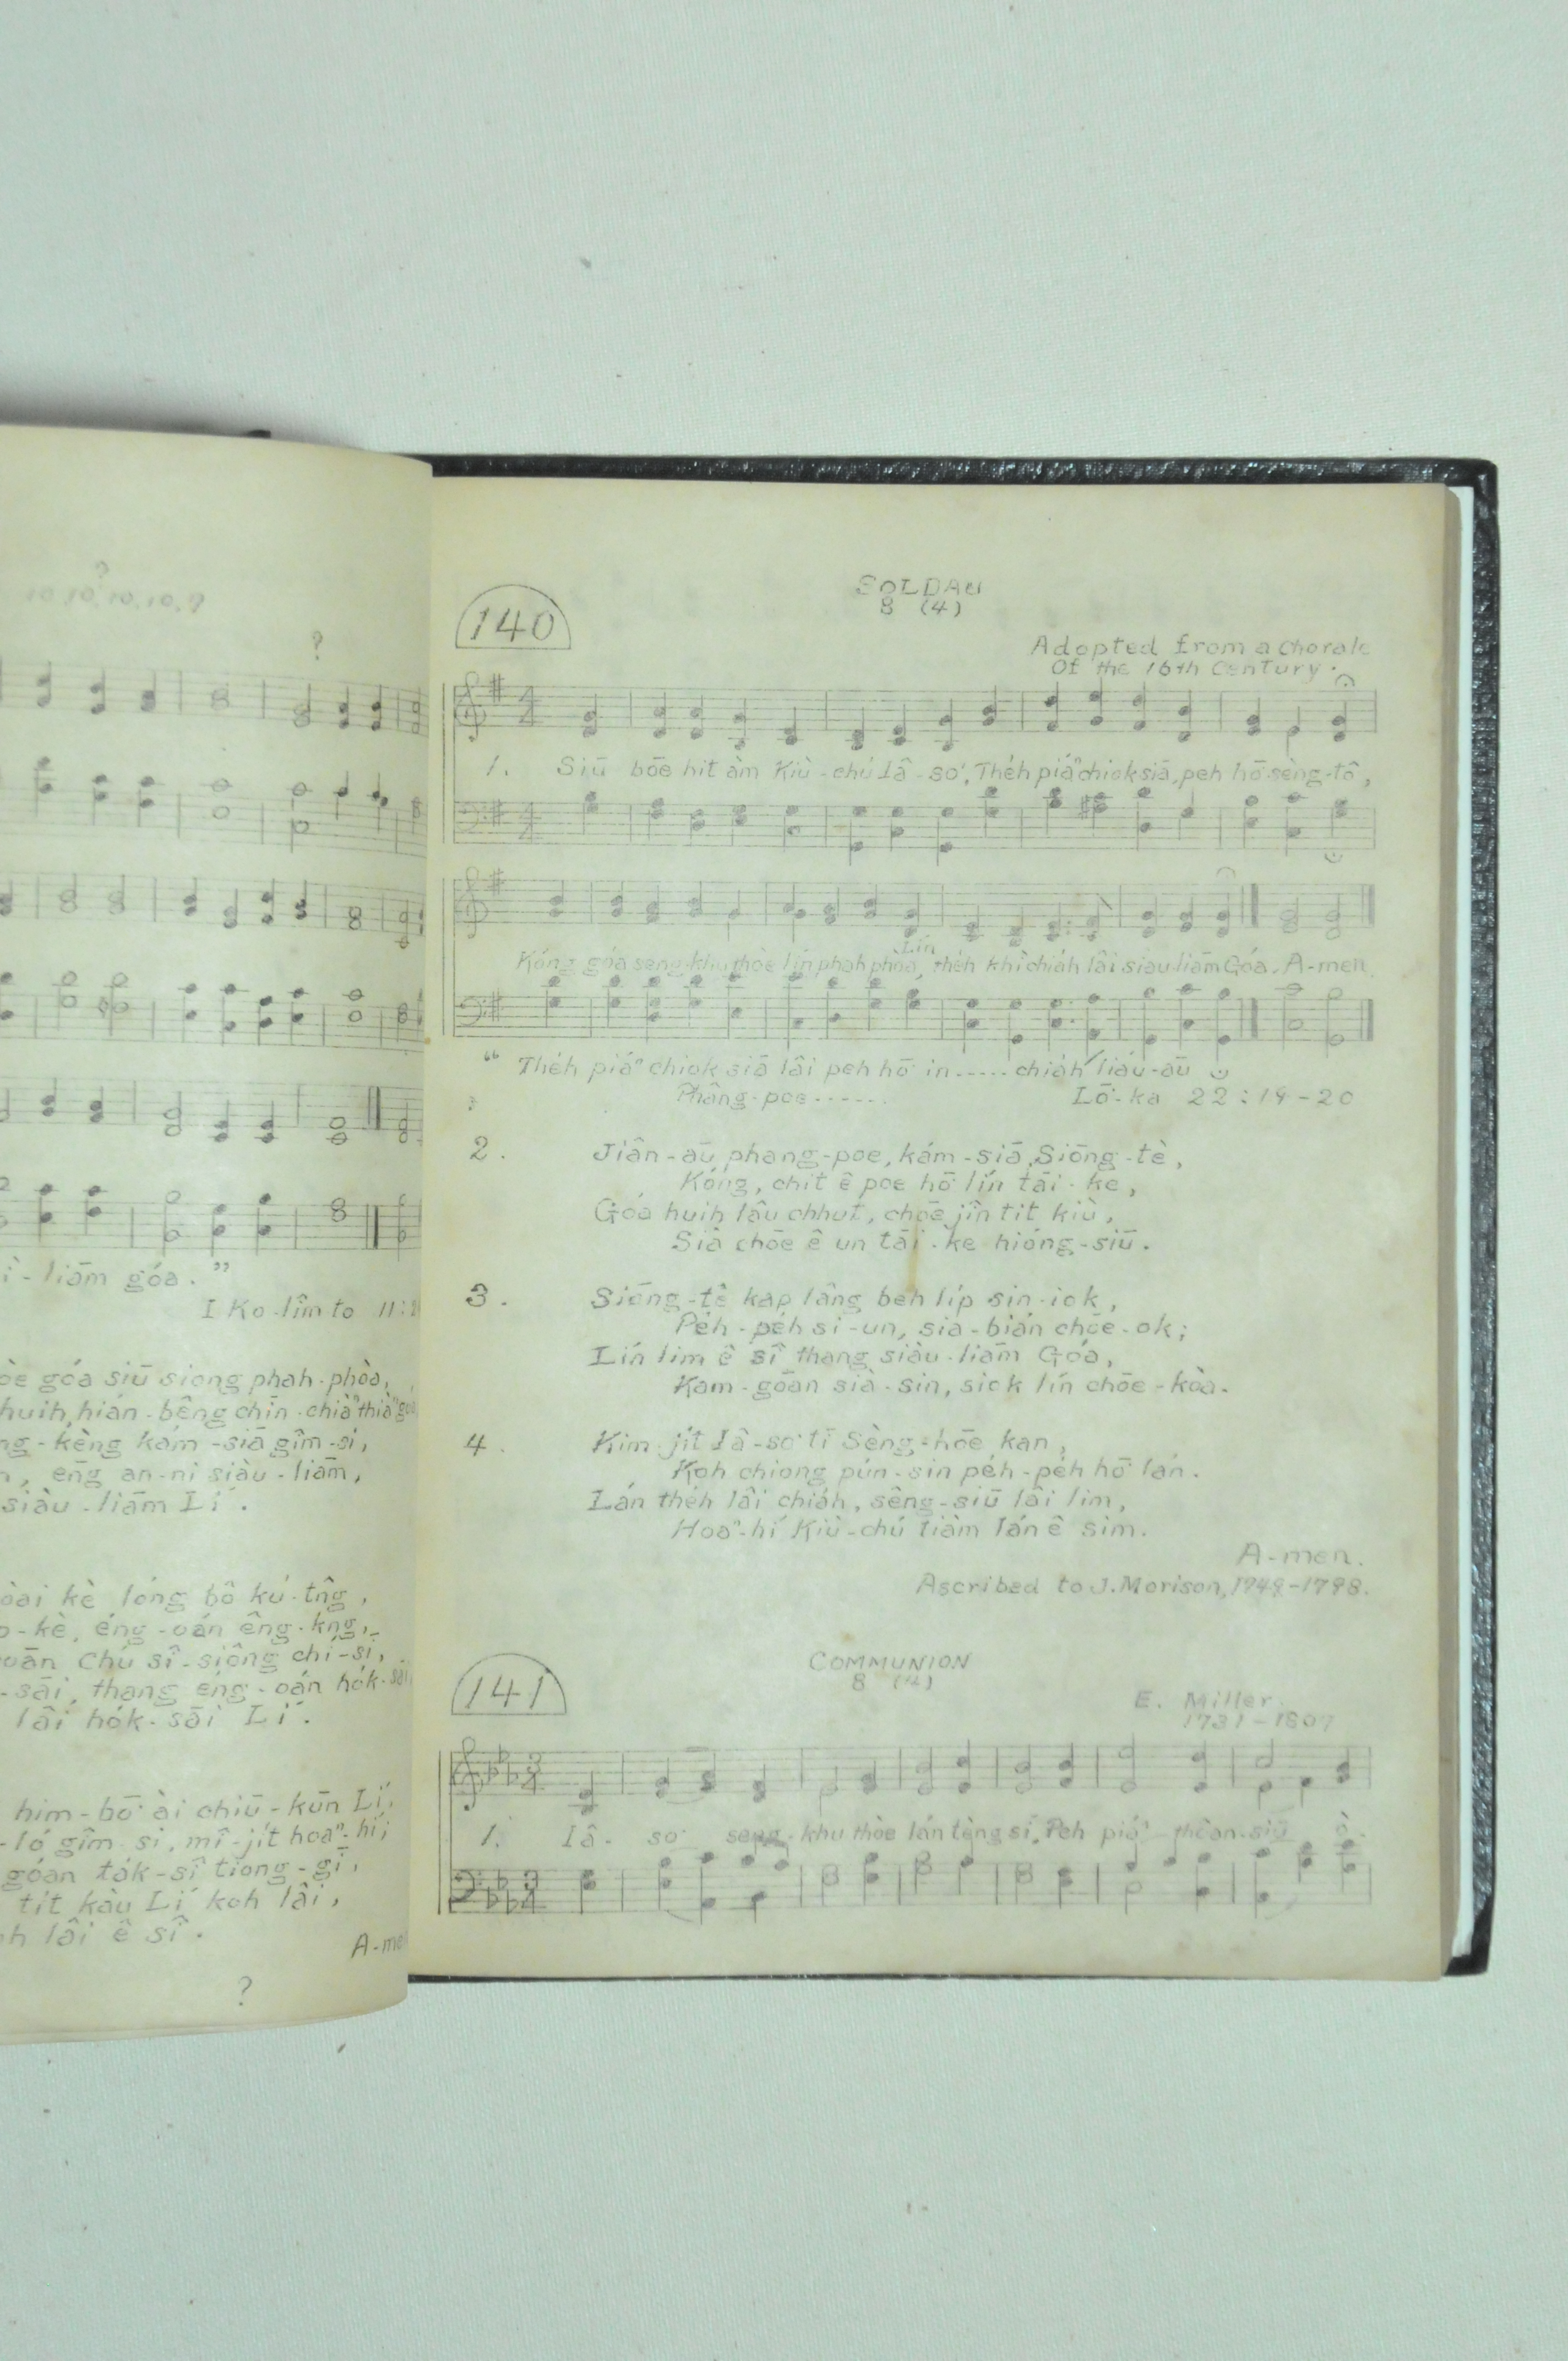 ?
I Ko-lîm-to 11:2
ì-liām góa.”
òe góa siū siong phah-phòa,
huih, hián-bêng chīn-chiàⁿ thiàⁿ góa
ng-kèng kám-siā gîm-si,
, ēng an-ni siàu-liām,
siàu-liām Lí.
òai kè lóng bô kú-tn̂g,
-kè, éng-oán êng-kng,
oān Chú sî-siông chí-sī,
-sāi, thang éng-oán ho̍k-sāi
lâi ho̍k-sāi Lí.
him-bō͘ ài chiū-kūn Lí,
-ló gîm-si, mî-ji̍t hoaⁿ-hí;
góan ta̍k-sî tiong-gī,
tit kàu Lí koh lâi,
h lâi ê sî.
A-me
?
SOLDAU
8 (4)
140
Adopted from a Chorale
Of the 16th Century.
1. Siū bōe hit àm Kiù-chú Iâ-so͘, The̍h piáⁿ chiok siā, peh hō͘ sèng-tô͘,
Lín
Kóng góa seng-khu thòe lín phah phòa, the̍h khì chia̍h lâi siàu-liām Góa. A-men.
“The̍h piáⁿ chiok siā lâi peh hō͘ in.....chia̍h liáu-āu
Phâng-poe...... Lō͘-ka 22:19-20
2. Jiân-āu phang-poe, kám-siā Siōng-tè,
Kóng, chit ê poe hō͘ lín tāi-ke,
Góa huih lâu chhut, chōe jîn tit kiù,
Sià chōe ê un tāi-ke hióng-siū.
3. Siōng-tè kap lâng beh li̍p sin-iok,
Pe̍h-pe̍h sì-un, sià-bián chōe-ok;
Lín lim ê sî thang siàu-liām Góa,
Kam-góan sià-sin, siok lín chōe-kòa.
4. Kim-ji̍t Iâ-so͘ tī Sèng-hōe kan,
Koh chiong pún-sin pe̍h-pe̍h hō͘ lán.
Lán the̍h lâi chia̍h, sêng-siū lâi lim,
Hoaⁿ-hí Kiù-chú tiàm lán ê sim.
A-men.
Ascribed to J. Morison, 1749-1798.
COMMUNION
8 (4)
141
E. Miller
1731-1807
1. Iâ-so͘ seng-khu thòe lán tèng sí, Peh piáⁿ thôan-siū